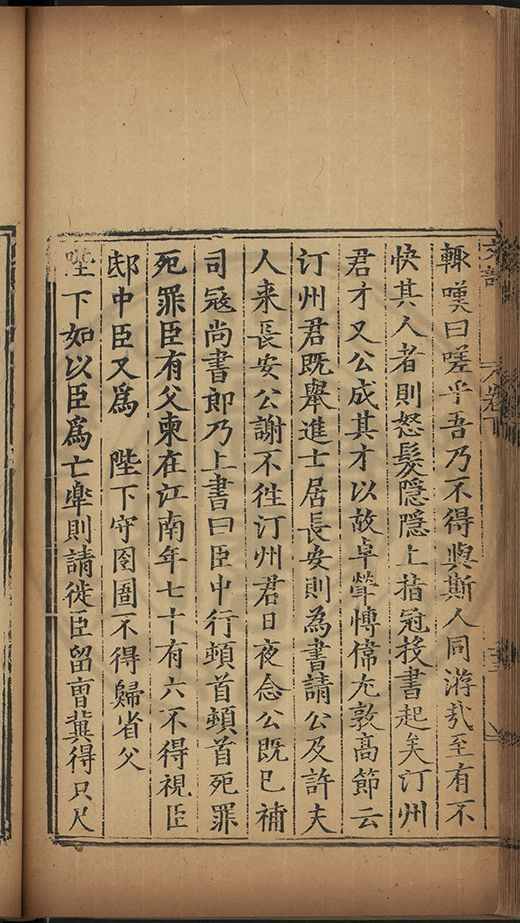 輙嘆曰嗟乎吾乃不得與斯人同游㢤至有不
快其人者則怒髮隱隱上指冠投書起矣汀州
君才又公成其才以故卓犖愽偉尤敦高節云
汀州君既舉進士居長安則為書請公及許夫
人来長安公謝不徃汀州君日夜念公既已補
司冦尚書郎乃上書曰臣中行頓首頓首死罪
死罪臣有父柬在江南年七十有六不得視臣
邸中臣又爲　陛下守囹圄不得歸省父
陛下如以臣爲亡辠則請徙臣留曹冀得只尺